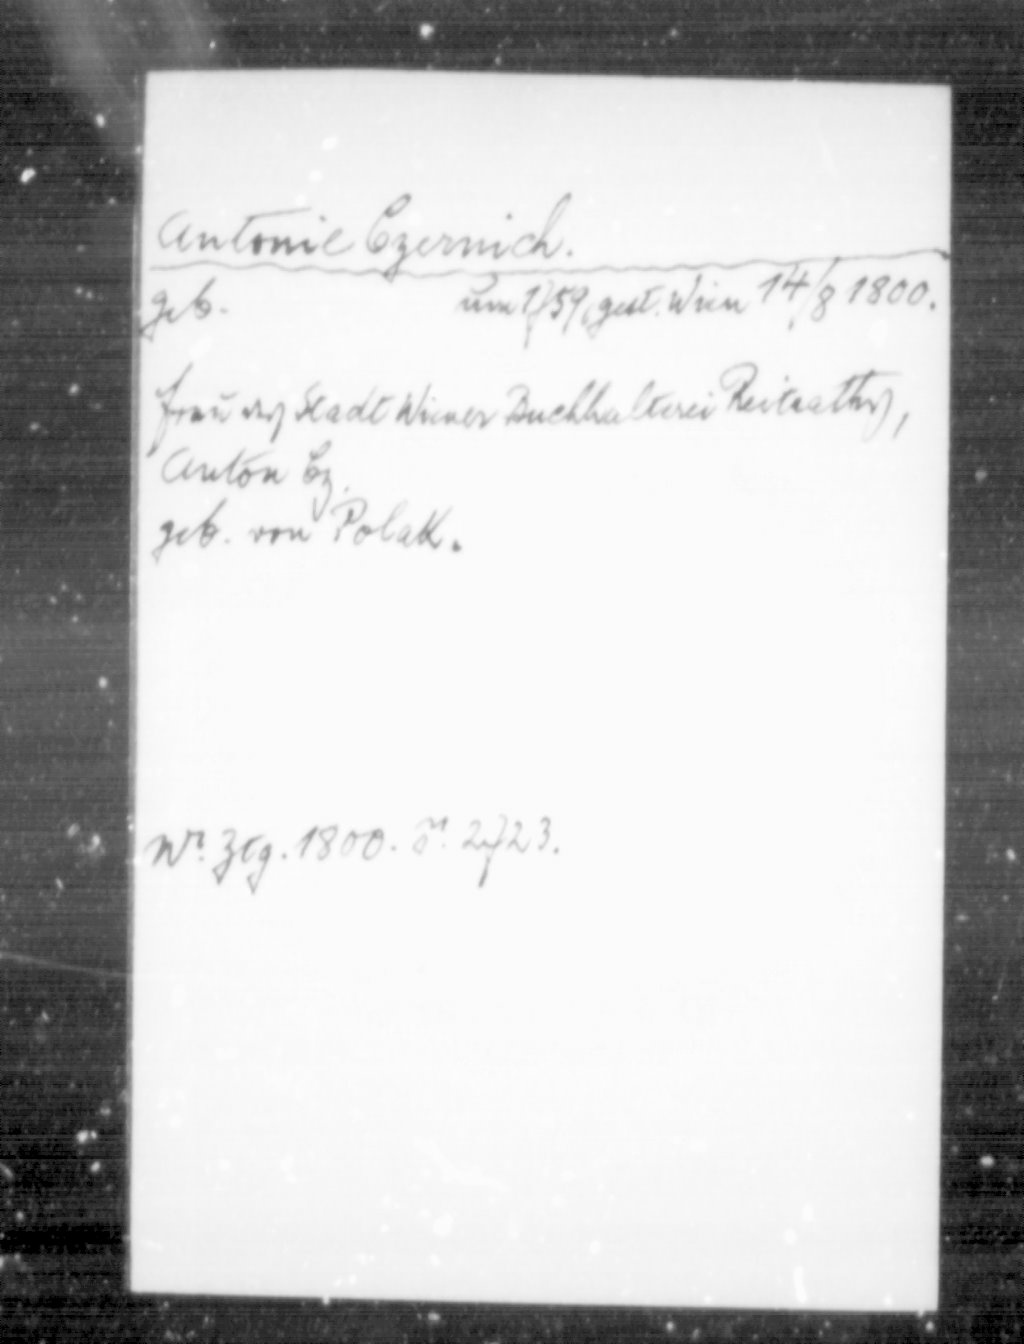 Antonie Czernich.
geb. um 1759, gest. Wien 14/8 1800.
Frau des Stadt Wiener Buchhalterei Raitraths,
Anton Cz.
geb. von Polak.
Wr. Ztg. 1800. S. 2723.